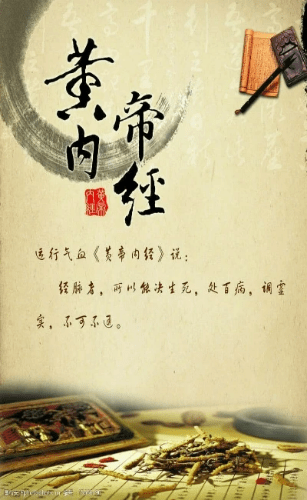 黄帝内經
运行气血《黄帝内经》说：
经脉者，可以能决生死，处百病，调虚
实，不可不通。